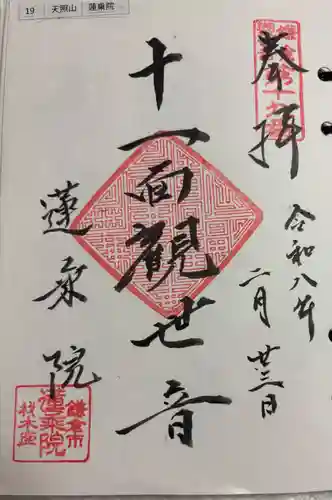 19 天照山 蓮乗院
奉拝
令和八年
二月廿三日
十一面観世音
蓮乗院
鎌倉市
蓮乗院
材木座